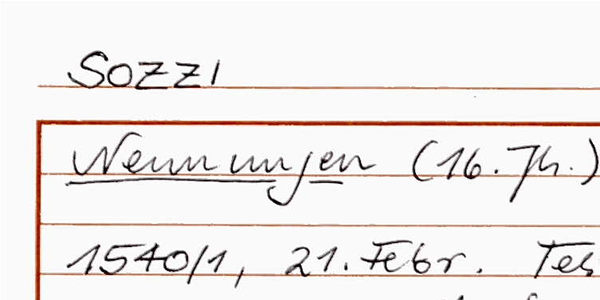 SOZZI
Nennungen (16. Jh.)
1540/1, 21. Febr. Tes